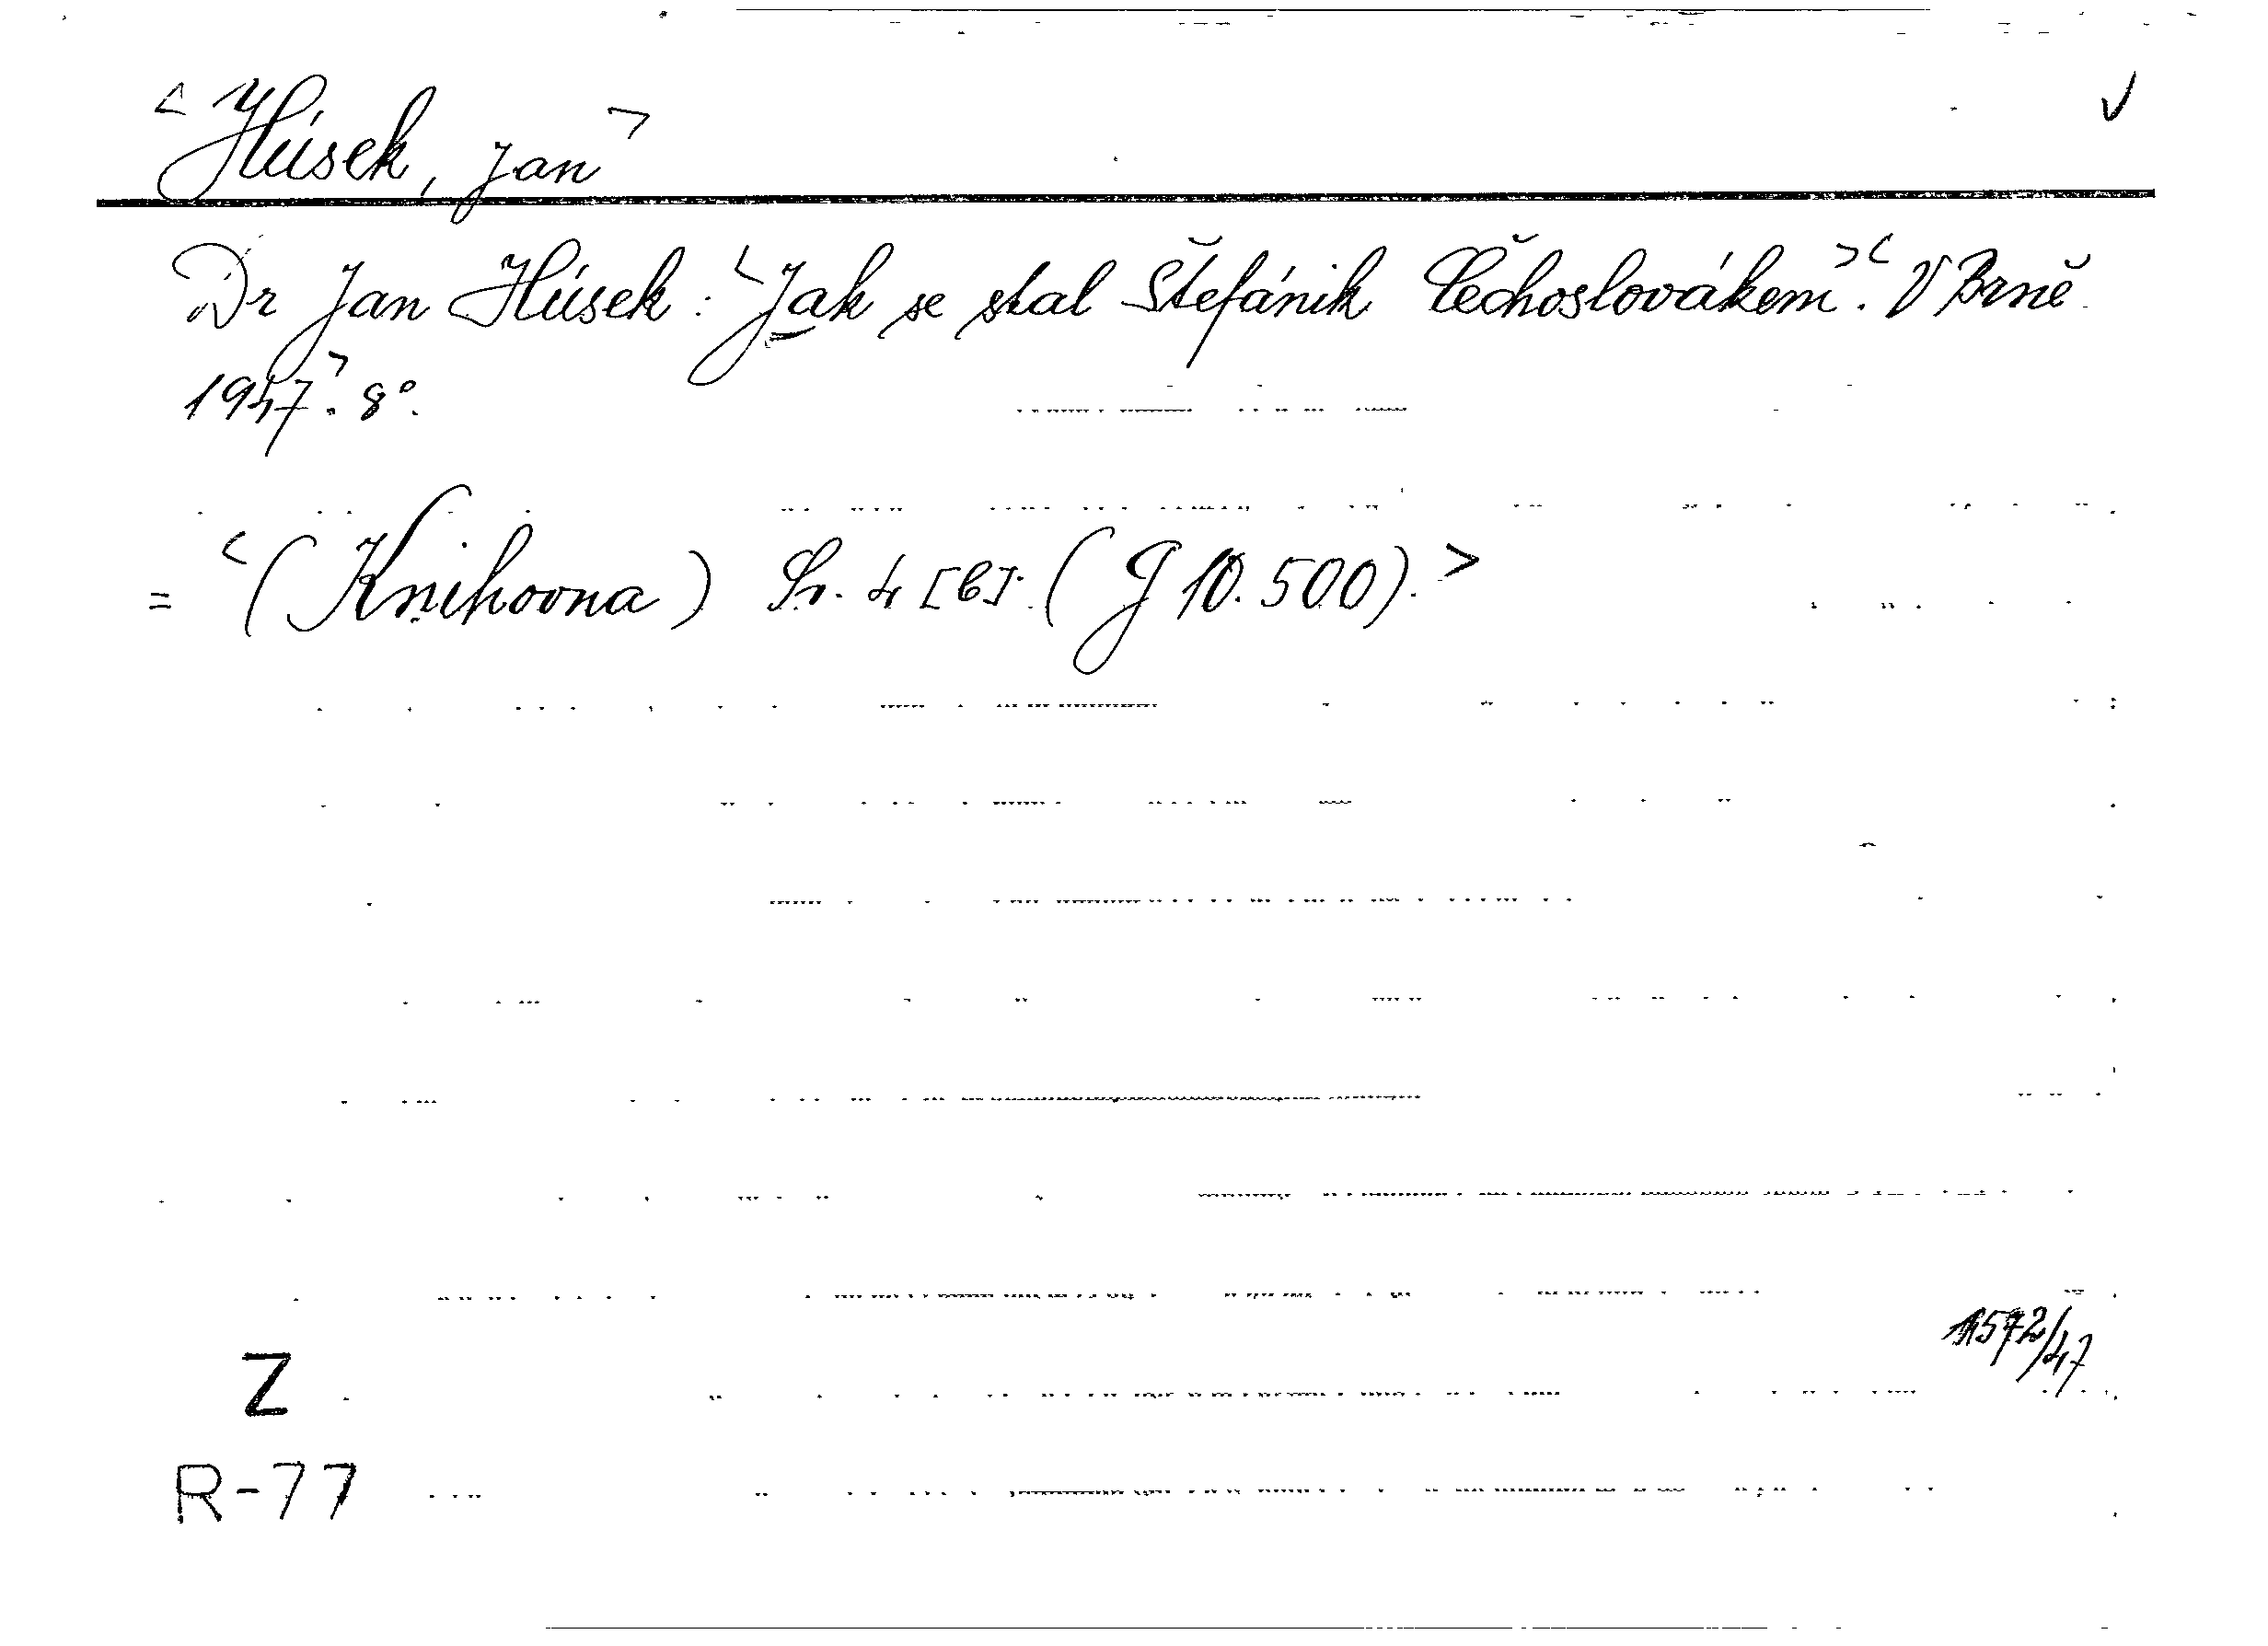 <Húsek, Jan>
Dr Jan Húsek: <Jak se stal Štefánik Čechoslovákem>. <V Brně
1947>. 8°.
= <(Knihovna) Sv. 4 [6]. (G 10.500).>
11572/47
Z
R-77